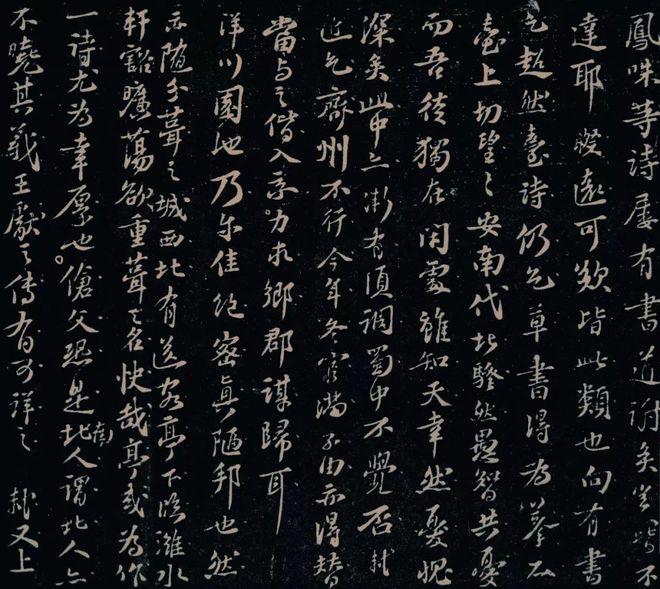 鳳咮等詩屢有書道謝矣豈皆不
達耶睽遠可歎皆此類也向有書
乞超然臺詩仍乞草書得為摹石
臺上切望〻安南代北騷然愚智共憂
而吾徒獨在閑處雖知天幸然憂愧
深矣此中亦漸有須調蜀中不覺否軾
近乞齊州不行今年冬官滿子由亦得替
當與之偕入京力求鄉郡謀歸耳
洋川園池乃尔佳絕密真陋邦也然
亦隨分葺之城西北有送客亭下臨濰水
軒豁曠蕩欲重葺之名快哉亭或為作
一詩尤為幸厚也傖父恐是北南人謂北人亦
不曉其義王獻之傳有可詳之 軾又上